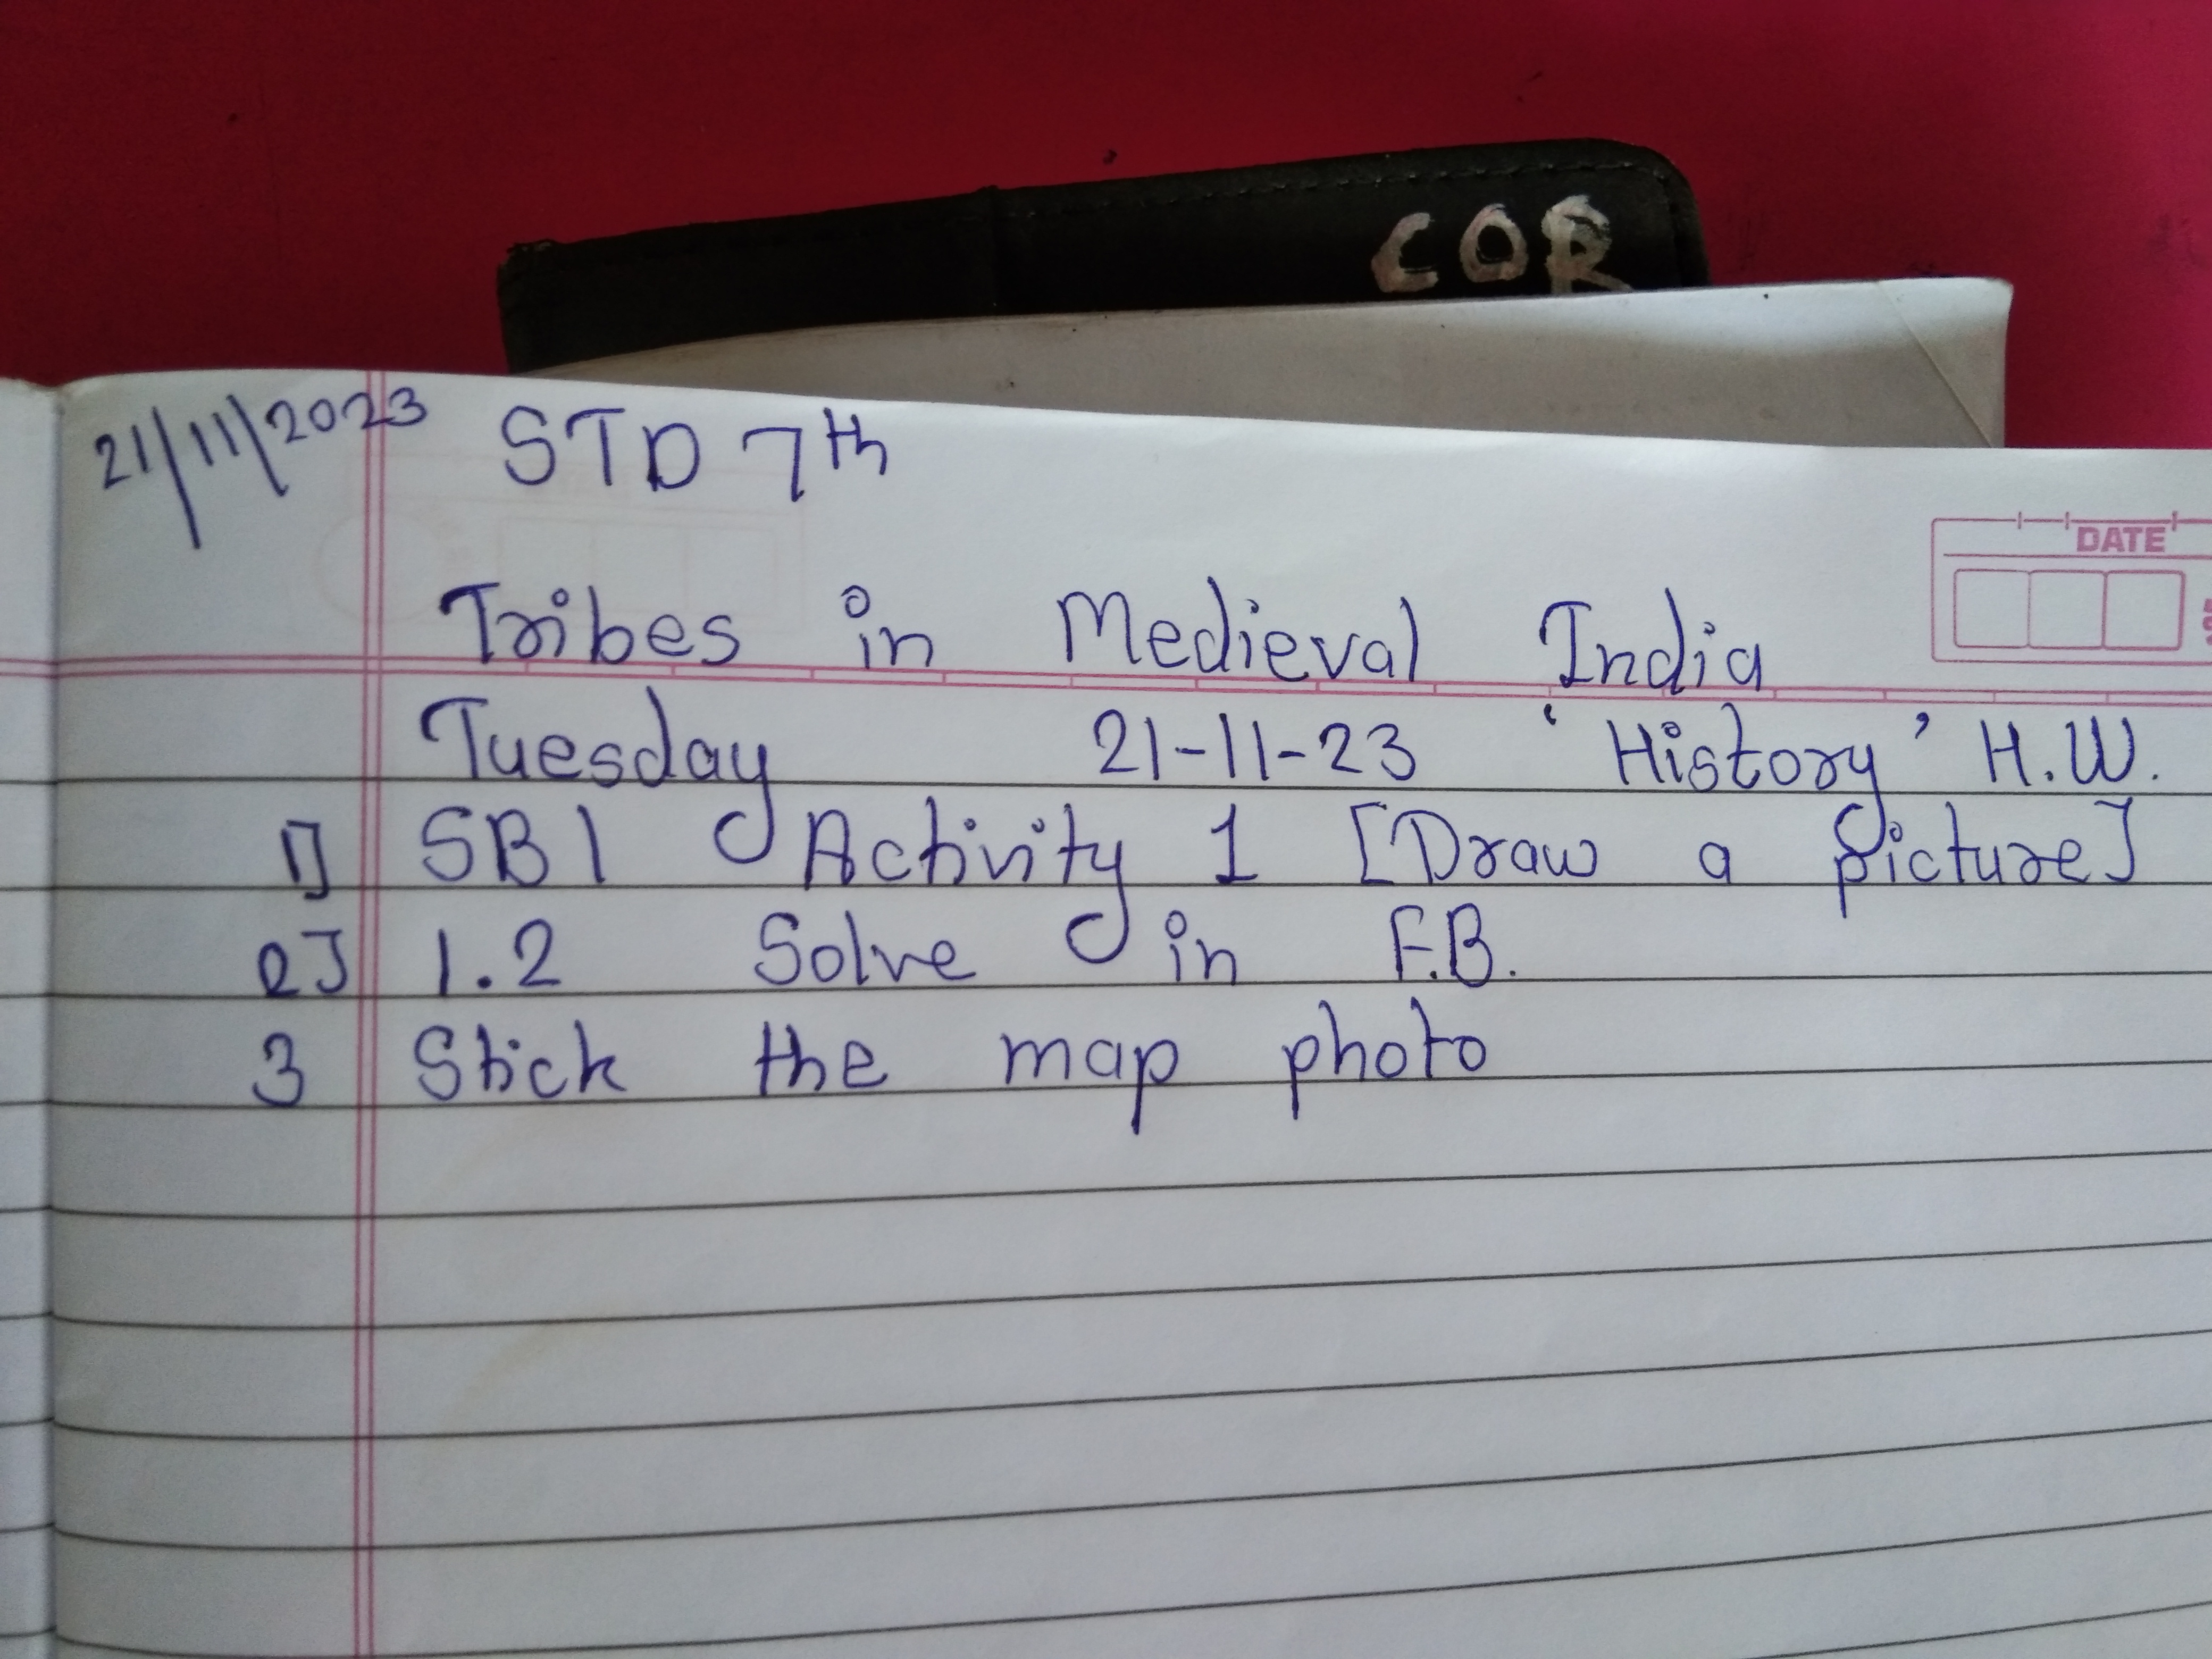 COR
21/11/2023 STD 7th
DATE
Tribes in Medieval India
Tuesday 21-11-23 ‘History’ H.W.
1] SB1 Activity 1 [Draw a picture]
2] 1.2 Solve in F.B.
3 Stick the map photo